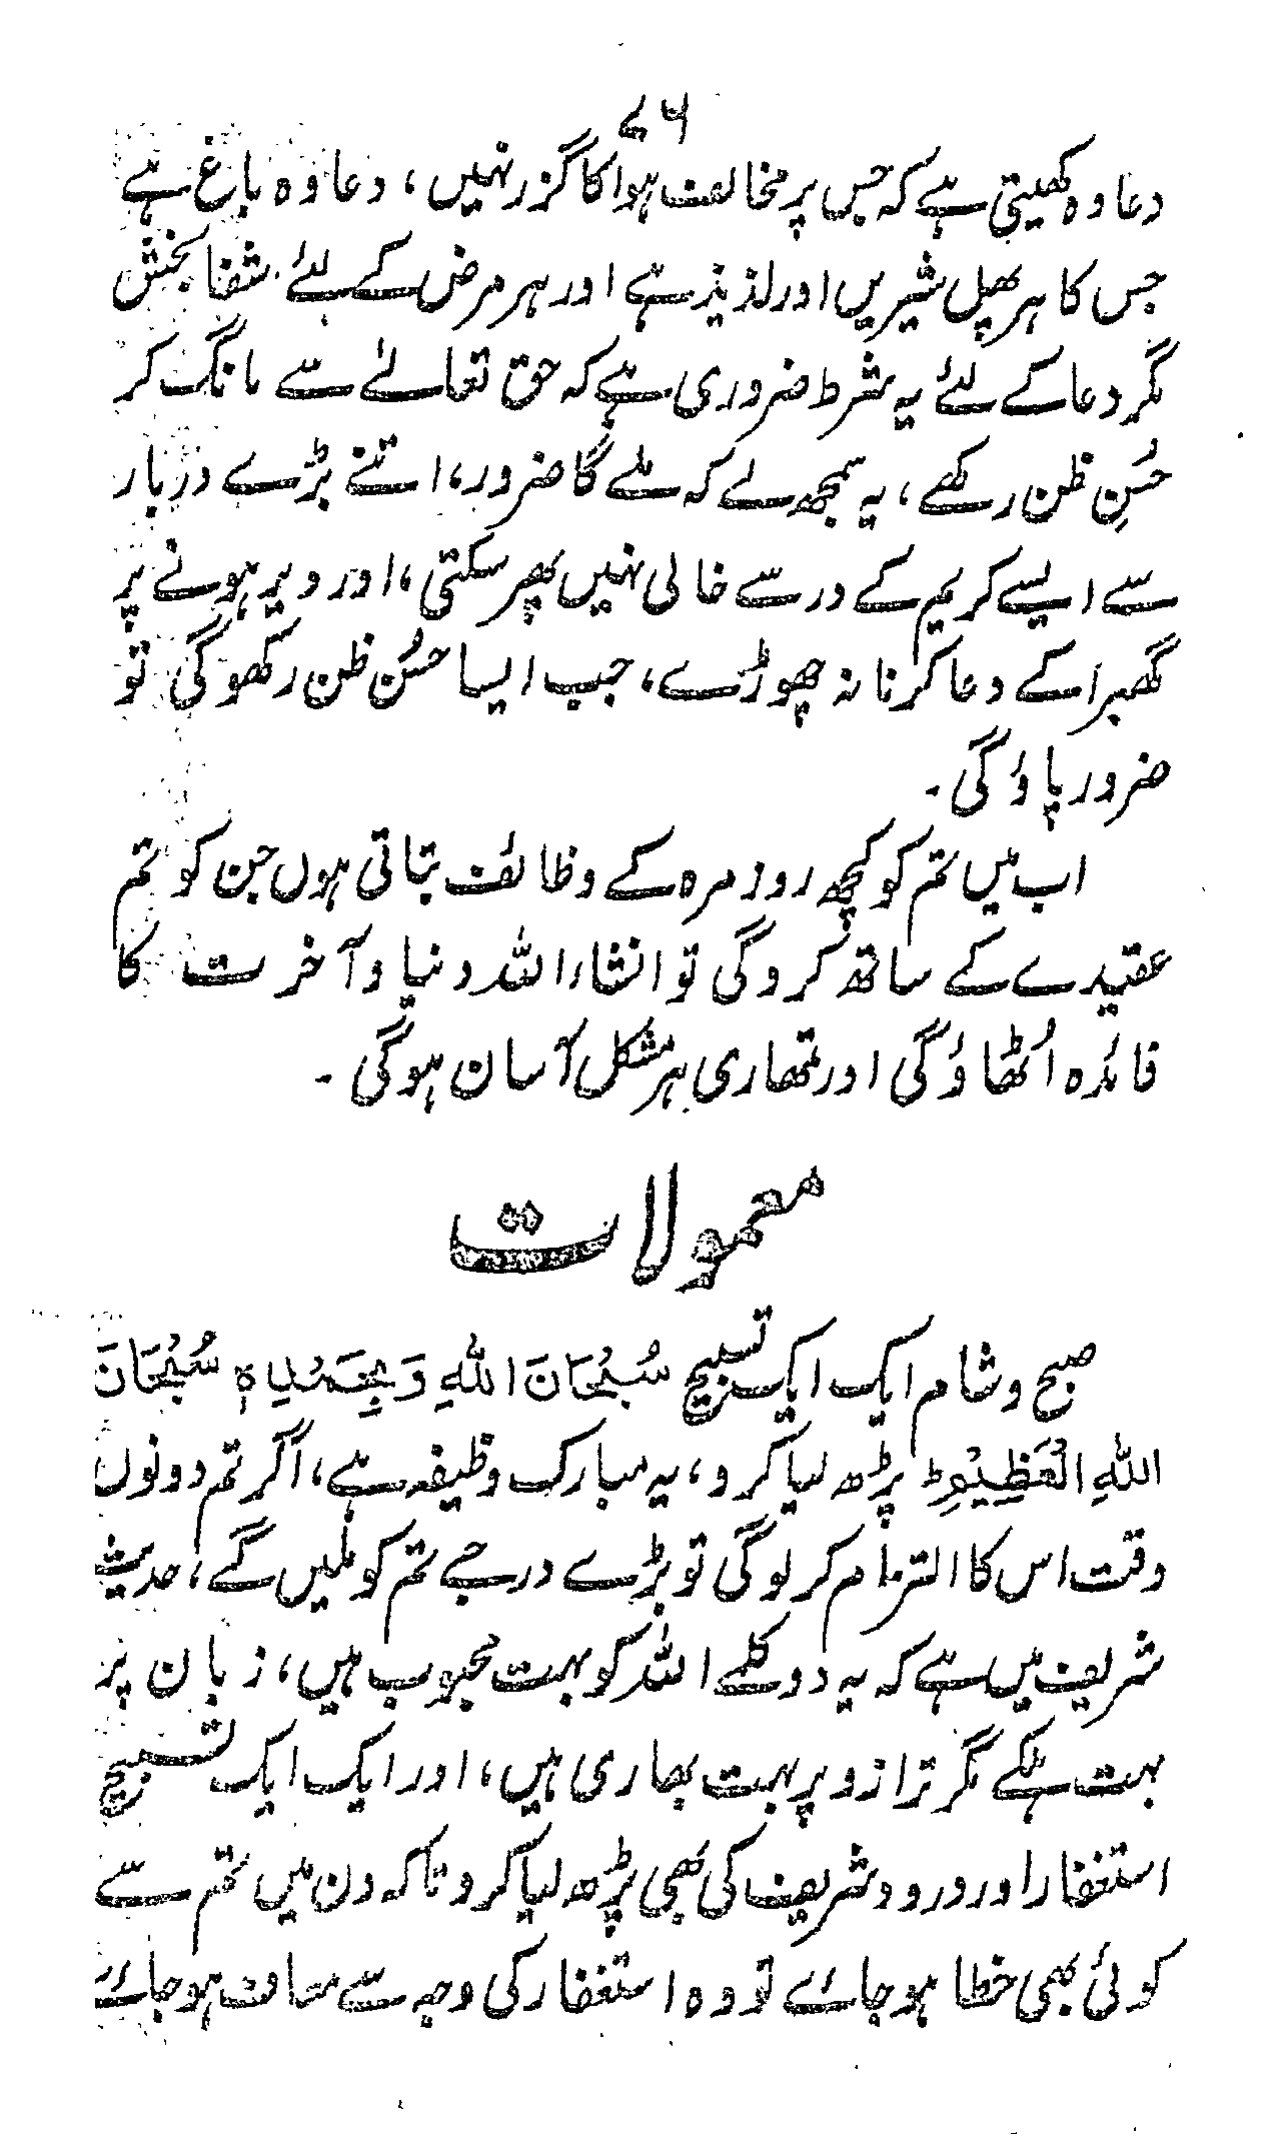 ۷۶
دعا وہ کھیتی ہے کہ جس پر مخالف ہوا کا گزر نہیں، دعا وہ باغ ہے
جس کا ہر پھل شیریں اور لذیذ ہے اور ہر مرض کے لئے شفا بخش
مگر دعا کے لئے یہ شرط ضروری ہے کہ حق تعالےٰ سے مانگ کر
حُسنِ ظن رکھے، یہ سمجھ لے کہ ملے گا ضرور، اتنے بڑے دربار
سے ایسے کریم کے در سے خالی نہیں پھر سکتی، اور دیر ہونے پر
گھبرا کے دعا کرنا نہ چھوڑے، جب ایسا حسُن ظن رکھو گی تو
ضرور پاؤ گی۔
اب میں تم کو کچھ روزمرہ کے وظائف بتاتی ہوں جن کو تم
عقیدے کے ساتھ کرو گی تو انشاء اللہ دنیا و آخرت کا
فائدہ اُٹھاؤ گی اور تمھاری ہر مشکل آسان ہو گی۔
معمولات
صبح و شام ایک ایک تسبیح سُبْحَانَ اللهِ وَبِحَمْدِهٖ سُبْحَانَ
اللهِ الْعَظِيْمِ ط پڑھ لیا کرو، یہ مبارک وظیفہ ہے، اگر تم دونوں
وقت اس کا التزام کر لو گی تو بڑے درجے تم کو ملیں گے، حدیث
شریف میں ہے کہ یہ دو کلمے اللہ کو بہت محبوب ہیں، زبان پر
بہت ہلکے مگر ترازو پر بہت بھاری ہیں، اور ایک ایک تسبیح
استغفار اور درود شریف کی بھی پڑھ لیا کرو تاکہ دن میں تم سے
کوئی بھی خطا ہو جائے تو وہ استغفار کی وجہ سے معاف ہو جائے